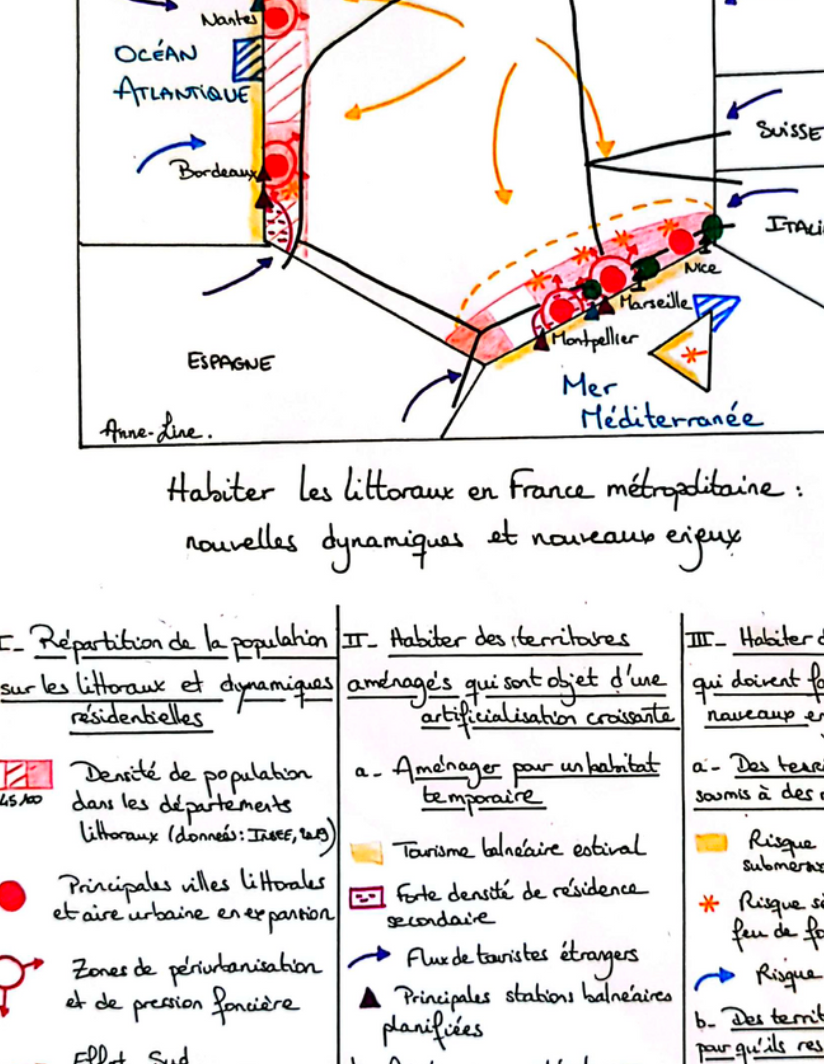 Nantes
OCÉAN
ATLANTIQUE
Bordeaux
SUISSE
ITALI
Nice
Marseille
Montpellier
ESPAGNE
Mer
Méditerranée
Anne-Line.
Habiter les littoraux en France métropolitaine :
nouvelles dynamiques et nouveaux enjeux
I- Répartition de la population
sur les littoraux et dynamiques
résidentielles
45 100
Densité de population
dans les départements
littoraux (données: INSEE, 2019)
Principales villes littorales
et aire urbaine en expansion
Zones de périurbanisation
et de pression foncière
Effet Sud
II- Habiter des territoires
aménagés qui sont objet d'une
artificialisation croissante
a- Aménager pour un habitat
temporaire
Tourisme balnéaire estival
Forte densité de résidence
secondaire
Flux de touristes étrangers
Principales stations balnéaires
planifiées
III- Habiter d
qui doivent fa
nouveaux en
a- Des terri
soumis à des r
Risque
submersi
Risque si
feu de fo
Risque
b- Des territ
pour qu'ils res